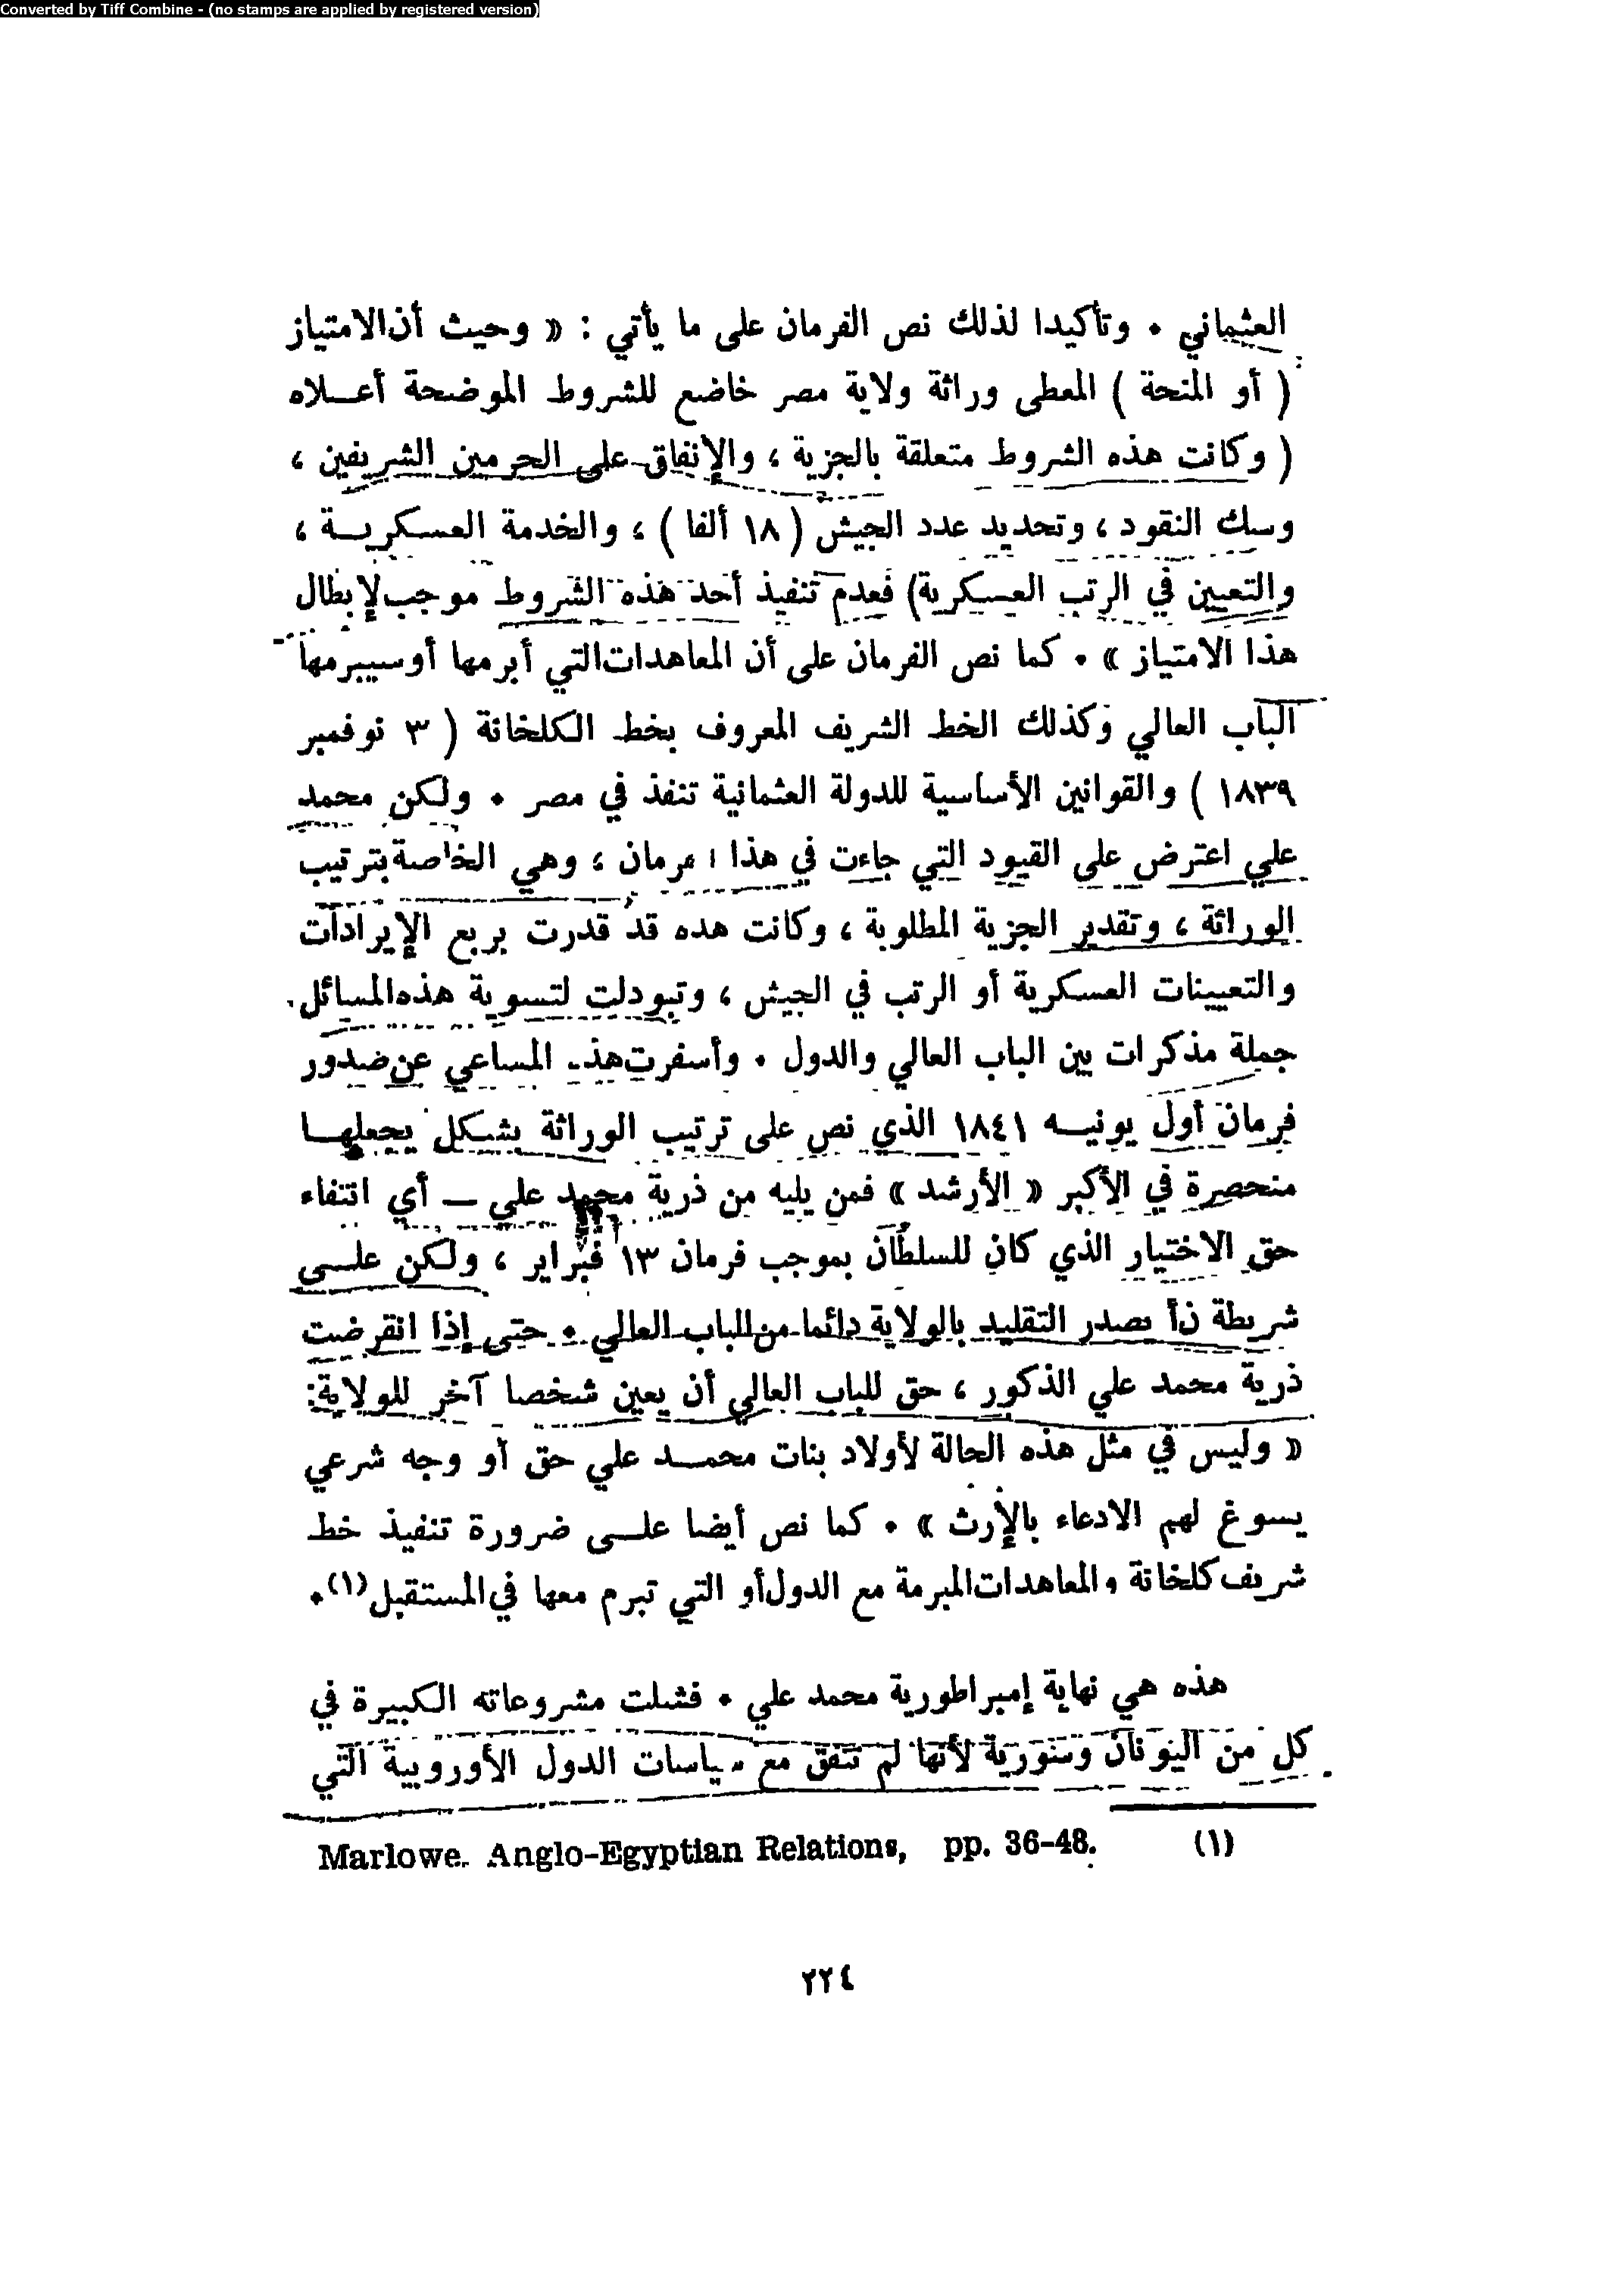 Converted by Tiff Combine - (no stamps are applied by registered version)
العثماني . وتأكيدا لذلك نص الفرمان على ما يأتي : « وحيث أن الامتياز
( أو المنحة ) المعطى وراثة ولاية مصر خاضع للشروط الموضحة أعـلاه
( وكانت هذه الشروط متعلقة بالجزية ، والإنفاق على الحرمين الشريفين ،
وسك النقود ، وتحديد عدد الجيش ( ١٨ ألفا ) ، والخدمة العسكريـة ،
والتعيين في الرتب العسكرية) فعدم تنفيذ أحد هذه الشروط موجب لإبطال
هذا الامتياز » . كما نص الفرمان على أن المعاهدات التي أبرمها أو سيبرمها
الباب العالي وكذلك الخط الشريف المعروف بخط الكلخانة ( ٣ نوفمبر
١٨٣٩ ) والقوانين الأساسية للدولة العثمانية تنفذ في مصر . ولكن محمد
علي اعترض على القيود التي جاءت في هذا ا مرمان ، وهي الخاصة بترتيب
الوراثة ، وتقدير الجزية المطلوبة ، وكانت هده قد قدرت بربع الإيرادات
والتعيينات العسكرية أو الرتب في الجيش ، وتبودلت لتسوية هذه المسائل
جملة مذكرات بين الباب العالي والدول . وأسفرت هذ المساعي عن صدور
فرمان أول يونيـه ١٨٤١ الذي نص على ترتيب الوراثة بشكل يجعلهـا
منحصرة في الأكبر « الأرشد » فمن يليه من ذرية محمد علي — أي انتفاء
حق الاختيار الذي كان للسلطان بموجب فرمان ١٣ فبراير ، ولكن علـى
شريطة ذأ يصدر التقليد بالولاية دائما من الباب العالي . حتى إذا انقرضت
ذرية محمد علي الذكور ، حق للباب العالي أن يعين شخصا آخر للولاية:
« وليس في مثل هذه الحالة لأولاد بنات محمـد علي حق أو وجه شرعي
يسوغ لهم الادعاء بالإرث » . كما نص أيضا علـى ضرورة تنفيذ خط
شريف كلخانة والمعاهدات المبرمة مع الدول أو التي تبرم معها في المستقبل(١).
هذه هي نهاية إمبراطورية محمد علي . فشلت مشروعاته الكبيرة في
كل من اليونان وسورية لأنها لم تتفق مع سياسات الدول الأوروبية التي
Marlowe. Anglo-Egyptian Relations, pp. 36-48. (١)
٢٢٤